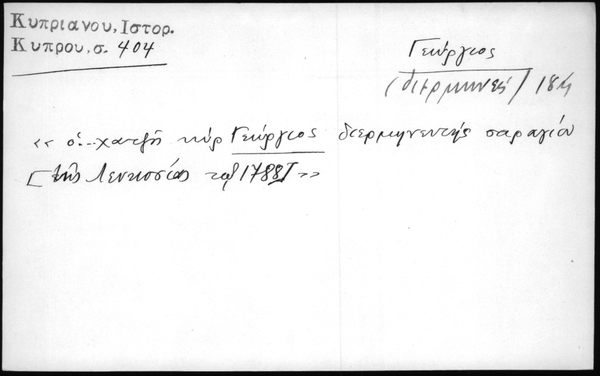 Κυπριανού, Ιστορ.
Κυπρου, σ. 404
Γεώργιος
(διερμηνεύς) 18ῃ
« ὁ... χατζῆ κὺρ Γεώργιος διερμηνευτὴς σαραγίου
[τῆς Λευκωσίας τῷ 1788] »